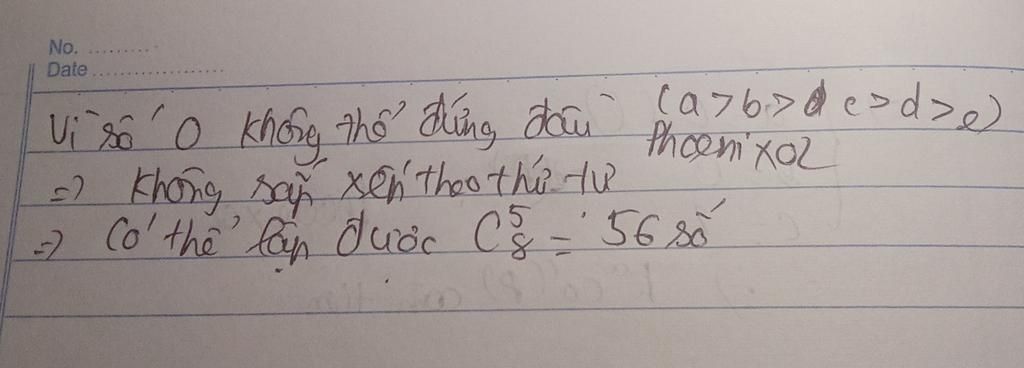 No. ..........
Date ...................
Vì số 0 không thể đứng đầu (a > b > c > d > e)
Phoenix02
=> Không sắp xếp theo thứ tự
=> Có thể lập được C⁵₈ = 56 số